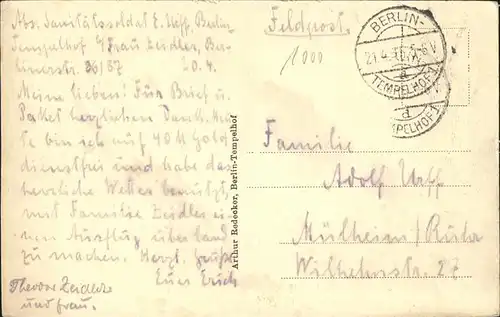 Abs. Sanitätssoldat E. Uff, Berlin-
Tempelhof b/Frau Zeidler, Ber-
linerstr. 86/87 20.4.
Meine Lieben! Für Brief u.
Paket herzlichen Dank. Heu-
te bin ich auf
dienstfrei und habe das
herrliche Wetter benützt,
mit Familie Zeidler ei-
nen Ausflug über Land
zu machen. Herzl. Grüße
Euer Erich
Theodor Zeidler
und Frau.
Arthur Redecker, Berlin-Tempelhof
Feldpost.
1000
BERLIN-
TEMPELHOF 1
a
Familie
Adolf Uff
Mülheim/Ruhr
Wilhelmstr. 27